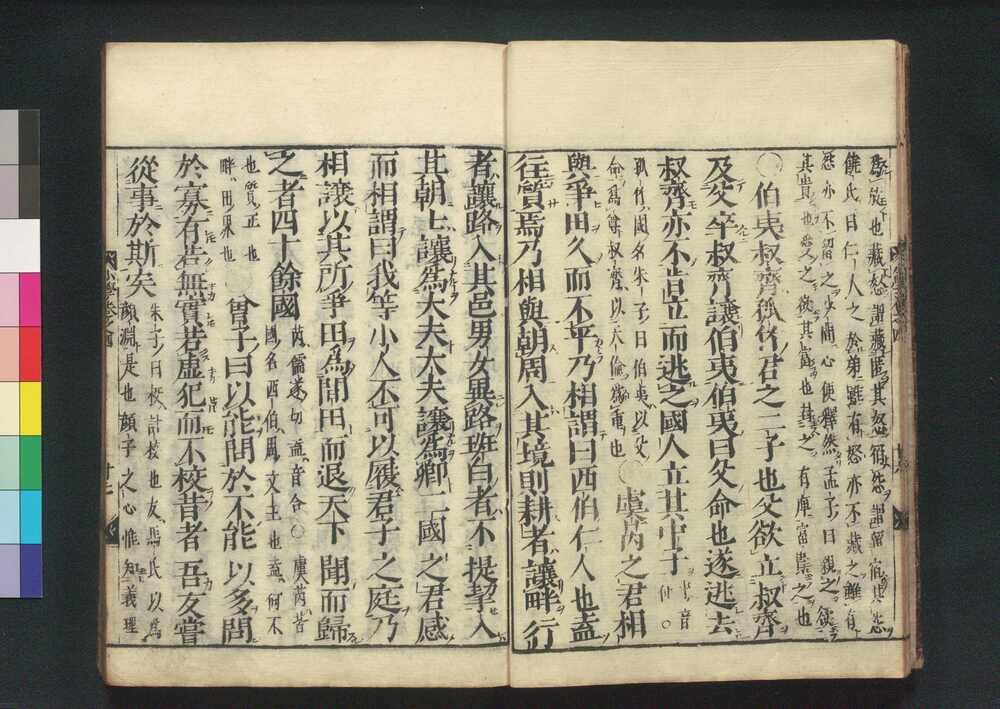 放也藏怒謂藏匿其怒宿怨謂留宿其怨
饒氏曰仁人之於弟雖有怒亦不藏之雖有
怨亦不留之少間心便釋然孟子曰親之欲
其貴也愛之欲其富也封之有庳富貴之也
○伯夷叔齊孤竹君之二子也父欲立叔齊
及父卒叔齊讓伯夷伯夷曰父命也遂逃去
叔齊亦不肯立而逃之國人立其中子
中音
仲○
孤竹國名朱子曰伯夷以父
命爲尊叔齊以天倫爲重也
○虞芮之君相
與爭田久而不平乃相謂曰西伯仁人也盍
往質焉乃相與朝周入其境則耕者讓畔行
者讓路入其邑男女異路班白者不提挈入
其朝士讓爲大夫大夫讓爲卿二國之君感
而相謂曰我等小人不可以履君子之庭乃
相讓以其所爭田爲閒田而退天下聞而歸
之者四十餘國
芮儒遂切盍音合○虞芮皆
國名西伯周文王也盍何不
也質正也
畔田界也
曾子曰以能問於不能以多問
於寡有若無實若虛犯而不校昔者吾友嘗
從事於斯矣
朱子曰校計校也友馬氏以爲
顏淵是也顏子之心惟知義理
小學卷之四 十七